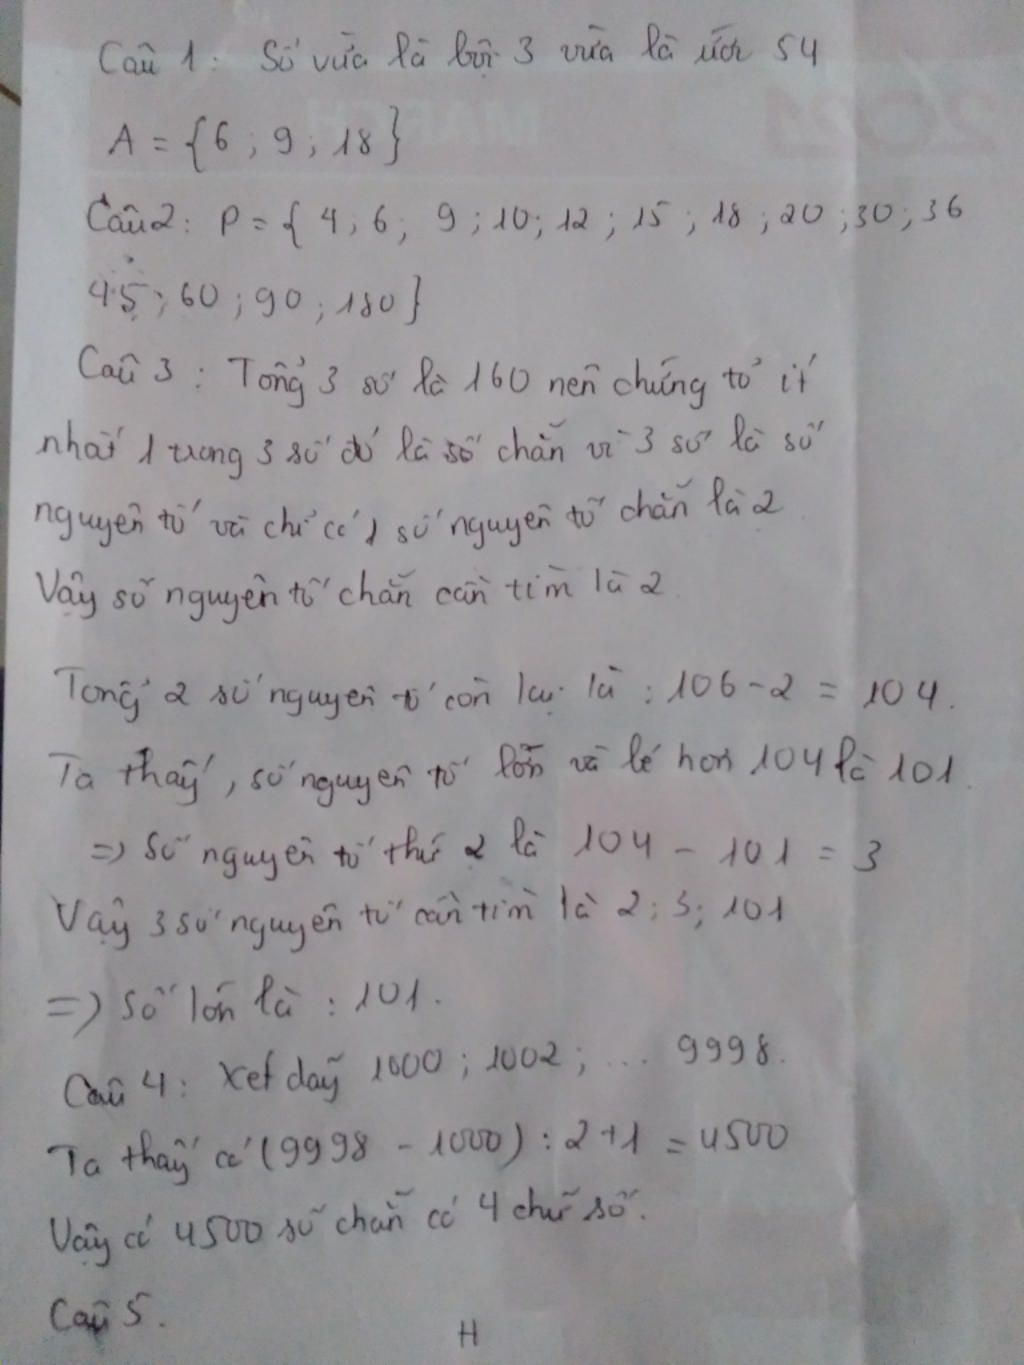 Câu 1: Số vừa là bội 3 vừa là ước 54
A = {6 ; 9 ; 18}
Câu 2: P = { 4 ; 6 ; 9 ; 10 ; 12 ; 15 ; 18 ; 20 ; 30 ; 36
45 ; 60 ; 90 ; 180 }
Câu 3 : Tổng 3 số là 160 nên chứng tỏ ít
nhất 1 trong 3 số đó là số chẵn vì 3 số là số
nguyên tố và chỉ có 1 số nguyên tố chẵn là 2
Vậy số nguyên tố chẵn cần tìm là 2.
Tổng 2 số nguyên tố còn lại là : 106 - 2 = 104.
Ta thấy, số nguyên tố lớn và bé hơn 104 là 101.
=> Số nguyên tố thứ 2 là 104 - 101 = 3
Vậy 3 số nguyên tố cần tìm là 2; 3; 101
=> Số lớn là : 101.
Câu 4 : Xét dãy 1000 ; 1002 ; ... 9998.
Ta thấy có (9998 - 1000) : 2 + 1 = 4500
Vậy có 4500 số chẵn có 4 chữ số.
Câu 5.
H
2021
MARCH